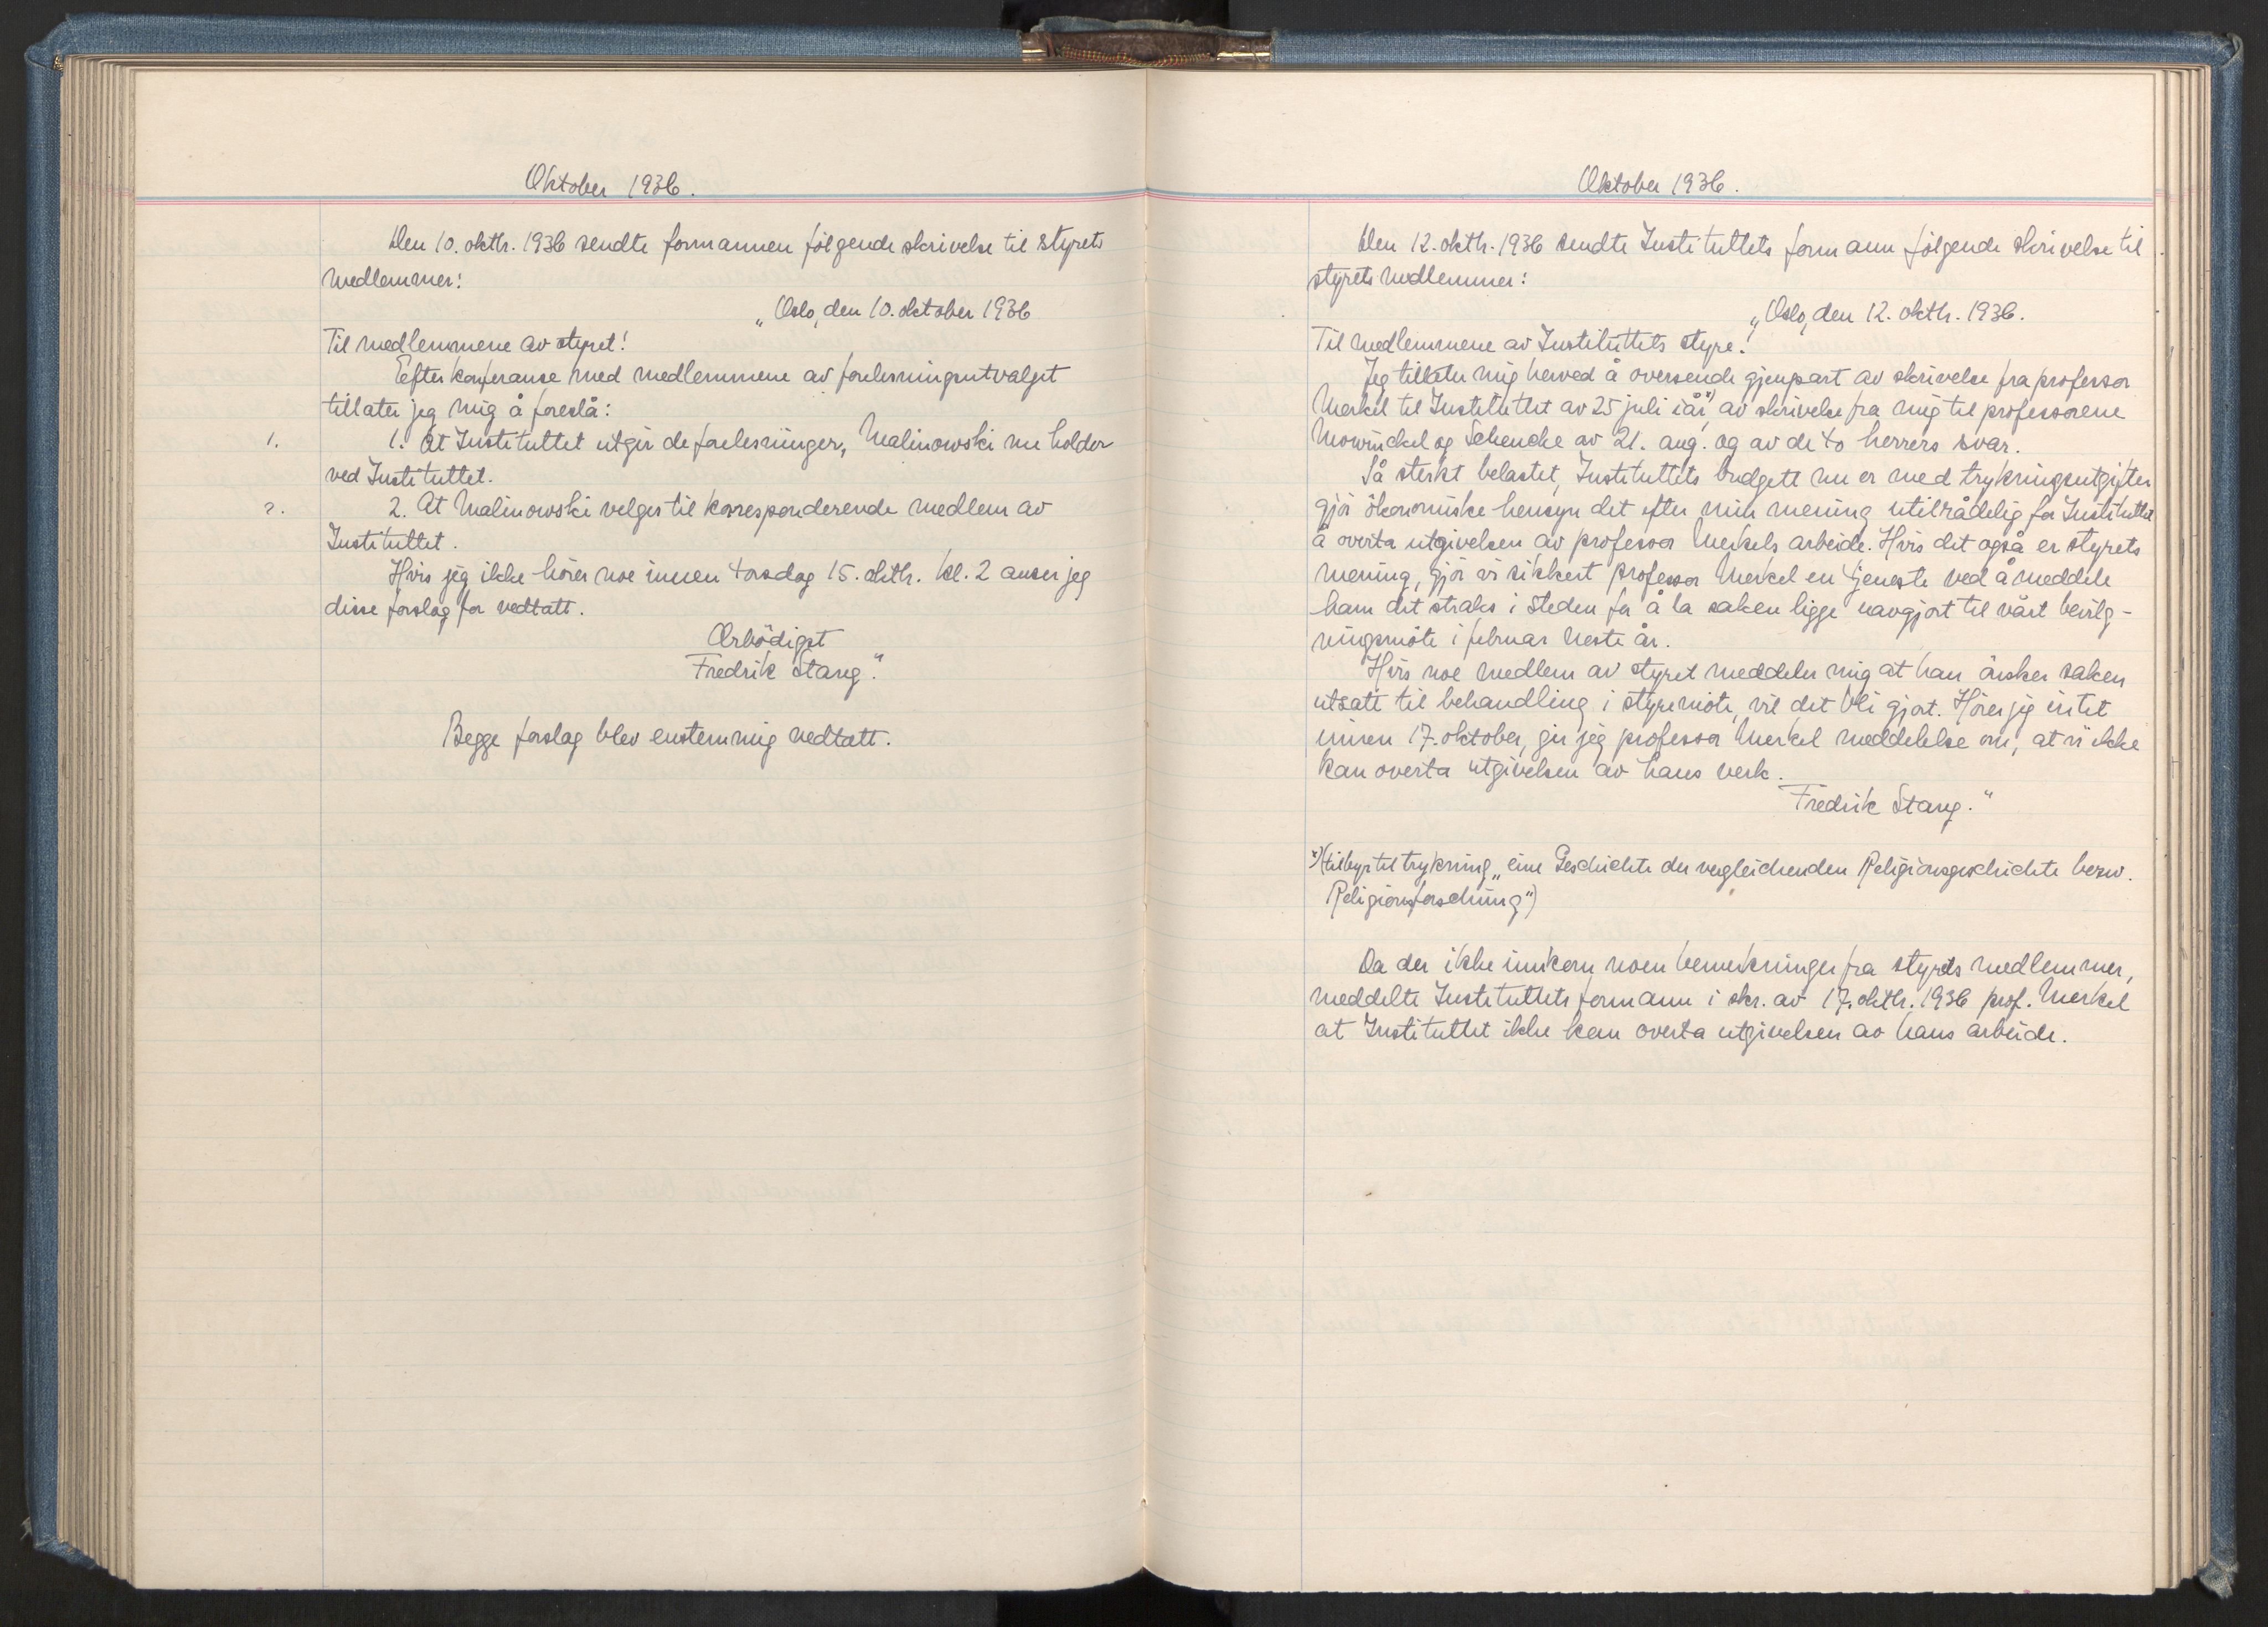 Oktober 1936.
Den 10. oktbr. 1936 sendte formannen følgende skrivelse til styrets
medlemmer:
„Oslo, den 10. oktober 1936
Til medlemmene av styret!
Efter konferanse med medlemmene av forelesningsutvalget
tillater jeg mig å foreslå:
1. 1. At Instituttet utgir de forelesninger, Malinowski nu holder
ved Instituttet.
2. 2. At Malinowski velges til korresponderende medlem av
Instituttet.
Hvis jeg ikke hører noe innen torsdag 15. oktbr. kl. 2 anser jeg
disse forslag for vedtatt.
Ærbödigst
Fredrik Stang."
Begge forslag blev enstemmig vedtatt.
Oktober 1936.
Den 12. oktbr. 1936 sendte Instituttets formann følgende skrivelse til
styrets medlemmer:
„Oslo, den 12. oktbr. 1936.
Til medlemmene av Instituttets styre!
Jeg tillater mig herved å oversende gjenpart av skrivelse fra professor
Merkel til Instituttet av 25 juli iår*), av skrivelse fra mig til professorene
Mowinckel og Schencke av 21. aug. og av de to herrers svar.
Så sterkt belastet, Instituttets budgett nu er med trykningsutgifter
gjör ökonomiske hensyn det efter min mening utilrådelig for Instituttet
å overta utgivelsen av professor Merkels arbeide. Hvis det også er styrets
mening, gjör vi sikkert professor Merkel en tjeneste ved å meddele
ham det straks i steden for å la saken ligge uavgjort til vårt bevilg-
ningsmöte i februar neste år.
Hvis noe medlem av styret meddeler mig at han önsker saken
utsatt til behandling i styremöte, vil det bli gjort. Hörer jeg intet
innen 17. oktober, gir jeg professor Merkel meddelelse om, at vi ikke
kan overta utgivelsen av hans verk.
Fredrik Stang."
*) (tilbyr til trykning „eine Geschichte der vergleichenden Religionsgeschichte bezw.
Religionsforschung")
Da der ikke innkom noen bemerkninger fra styrets medlemmer,
meddelte Instituttets formann i skr. av 17. oktbr. 1936 prof. Merkel
at Instituttet ikke kan overta utgivelsen av hans arbeide.